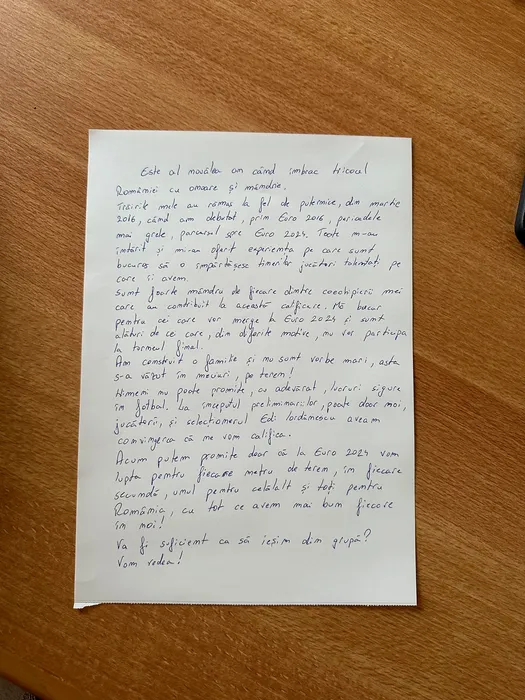 Este al nouălea an când îmbrac tricoul
României cu onoare și mândrie.
Trăirile mele au rămas la fel de puternice, din martie
2016, când am debutat, prin Euro 2016, perioadele
mai grele, parcursul spre Euro 2024. Toate m-au
întărit și mi-au oferit experiența pe care sunt
bucuros să o împărtășesc tinerilor jucători talentați pe
care îi avem.
Sunt foarte mândru de fiecare dintre coechipierii mei
care au contribuit la această calificare. Mă bucur
pentru cei care vor merge la Euro 2024 și sunt
alături de cei care, din diferite motive, nu vor participa
la turneul final.
Am construit o familie și nu sunt vorbe mari, asta
s-a văzut în meciuri, pe teren!
Nimeni nu poate promite, cu adevărat, lucruri sigure
în fotbal. La începutul preliminariilor, poate doar noi,
jucătorii, și selecționerul Edi Iordănescu aveam
convingerea că ne vom califica.
Acum putem promite doar că la Euro 2024 vom
lupta pentru fiecare metru de teren, în fiecare
secundă, unul pentru celălalt și toți pentru
România, cu tot ce avem mai bun fiecare
în noi!
Va fi suficient ca să ieșim din grupă?
Vom vedea!